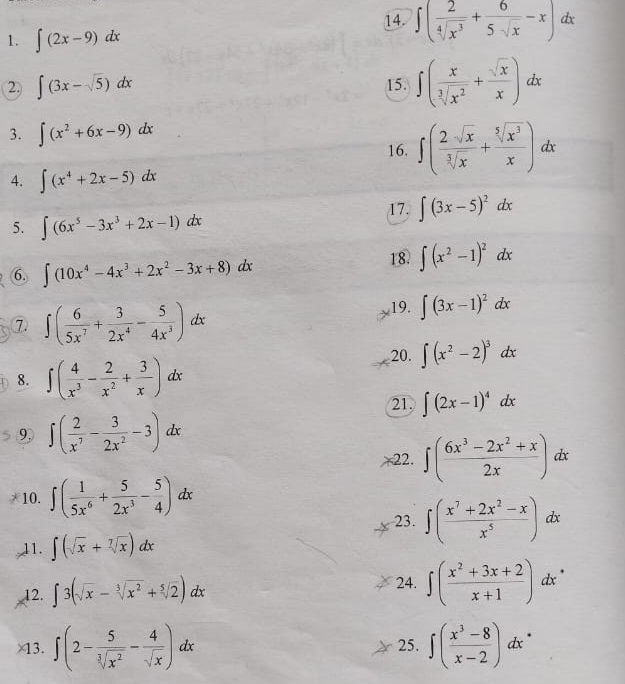 1. ∫ (2x − 9) dx
2. ∫ (3x − √5) dx
3. ∫ (x² + 6x − 9) dx
4. ∫ (x⁴ + 2x − 5) dx
5. ∫ (6x⁵ − 3x³ + 2x − 1) dx
6. ∫ (10x⁴ − 4x³ + 2x² − 3x + 8) dx
7. ∫ (6/5x⁷ + 3/2x⁴ − 5/4x³) dx
8. ∫ (4/x³ − 2/x² + 3/x) dx
9. ∫ (2/x⁷ − 3/2x² − 3) dx
10. ∫ (1/5x⁶ + 5/2x³ − 5/4) dx
11. ∫ (√x + ⁷√x) dx
12. ∫ 3(√x − ³√x² + ⁵√2) dx
13. ∫ (2 − 5/³√x² − 4/√x) dx
14. ∫ (2/⁴√x³ + 6/5√x − x) dx
15. ∫ (x/³√x² + √x/x) dx
16. ∫ (2√x/³√x + ⁵√x³/x) dx
17. ∫ (3x − 5)² dx
18. ∫ (x² − 1)² dx
19. ∫ (3x − 1)² dx
20. ∫ (x² − 2)³ dx
21. ∫ (2x − 1)⁴ dx
22. ∫ (6x³ − 2x² + x / 2x) dx
23. ∫ (x⁷ + 2x² − x / x⁵) dx
24. ∫ (x² + 3x + 2 / x + 1) dx
25. ∫ (x³ − 8 / x − 2) dx